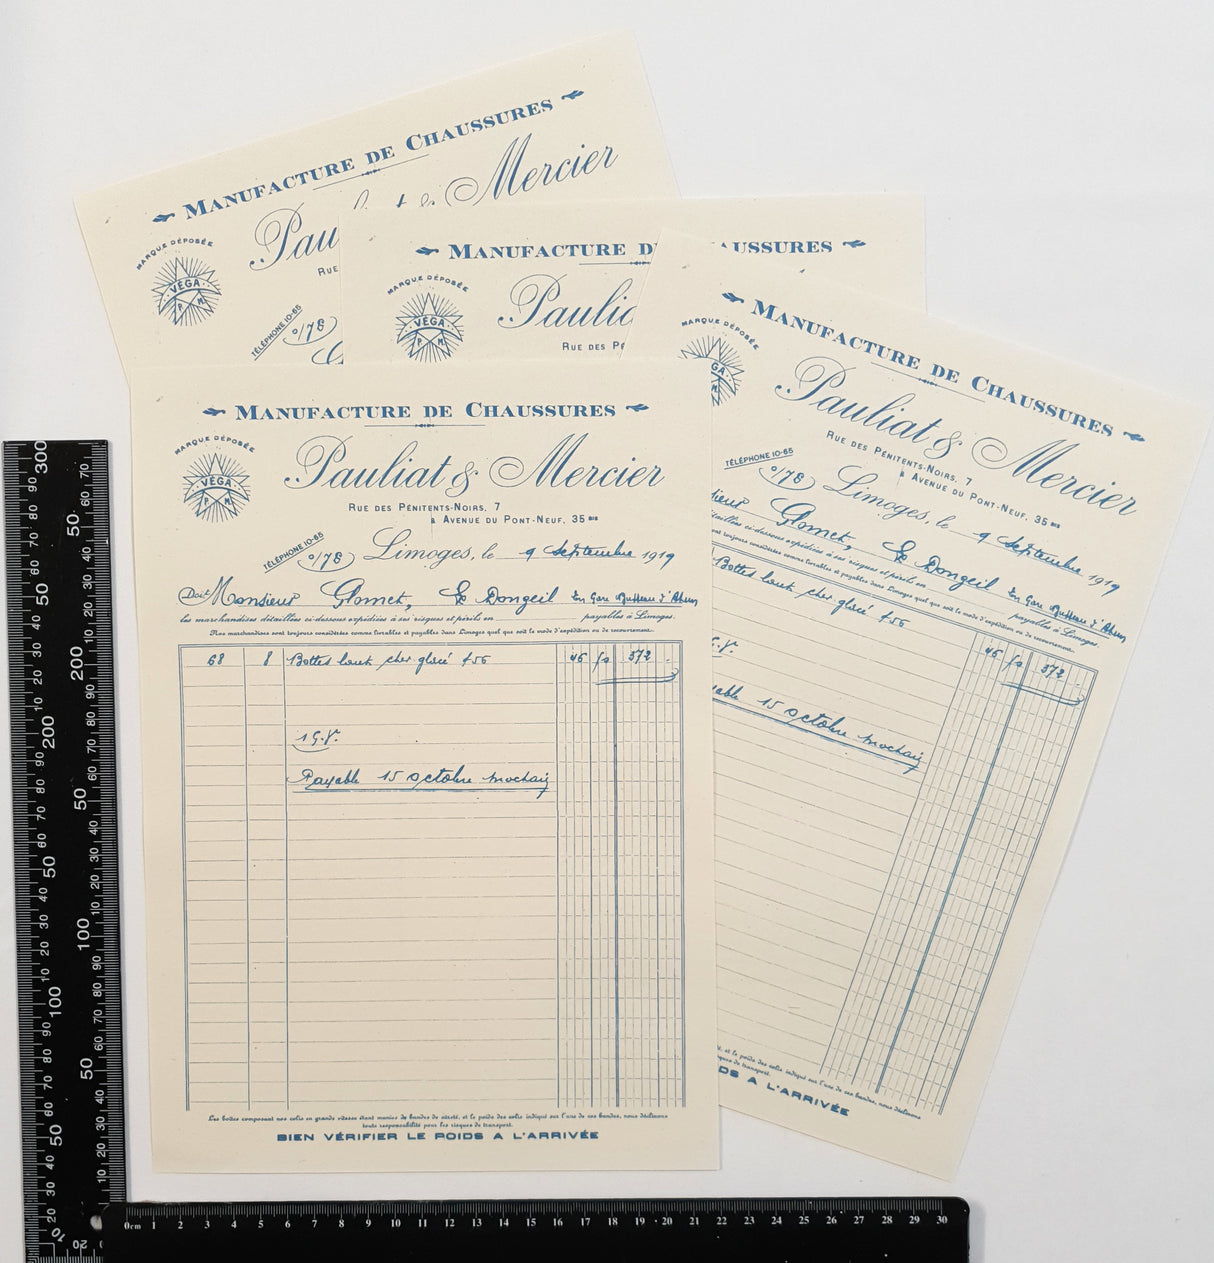 MANUFACTURE DE CHAUSSURES
Mercier
Pau
MARQUE DÉPOSÉE
VÉGA
P M
RUE
TÉLÉPHONE 10-65
0/78
MANUFACTURE D
AUSSURES
MARQUE DÉPOSÉE
VÉGA
P M
Paulia
RUE DES PÉ
MANUFACTURE DE CHAUSSURES
MARQUE DÉPOSÉE
GA
Pauliat & Mercier
RUE DES PÉNITENTS-NOIRS, 7
& AVENUE DU PONT-NEUF, 35 BIS
TÉLÉPHONE 10-65
0/78
Limoges, le 9 Septembre 1919
sieur Glomet, Le Dongeil En Gare
détaillées ci-dessous expédiées à ses risques et périls en payables à Limoges.
sont toujours considérées comme livrables et payables dans Limoges quel que soit le mode d'expédition ou de recouvrement.
Bottes haut glacé
46 50 372
able 15 octobre prochain
, et le poids des colis indiqué sur l'une de ces bandes, nous déclinons
risques de transport.
DS A L'ARRIVÉE
MANUFACTURE DE CHAUSSURES
MARQUE DÉPOSÉE
VÉGA
P M
Pauliat & Mercier
RUE DES PÉNITENTS-NOIRS, 7
& AVENUE DU PONT-NEUF, 35 BIS
TÉLÉPHONE 10-65
0/78
Limoges, le 9 Septembre 1919
Doit Monsieur Glomet, Le Dongeil En Gare
les marchandises détaillées ci-dessous expédiées à ses risques et périls en payables à Limoges.
Nos marchandises sont toujours considérées comme livrables et payables dans Limoges quel que soit le mode d'expédition ou de recouvrement.
68 8 Bottes haut glacé 46 50 372
Payable 15 octobre prochain
Les boîtes composant nos colis en grande vitesse étant munies de bandes de sûreté, et le poids des colis indiqué sur l'une de ces bandes, nous déclinons
toute responsabilité pour les risques de transport.
BIEN VÉRIFIER LE POIDS A L'ARRIVÉE
0cm 1 2 3 4 5 6 7 8 9 10 11 12 13 14 15 16 17 18 19 20 21 22 23 24 25 26 27 28 29 30